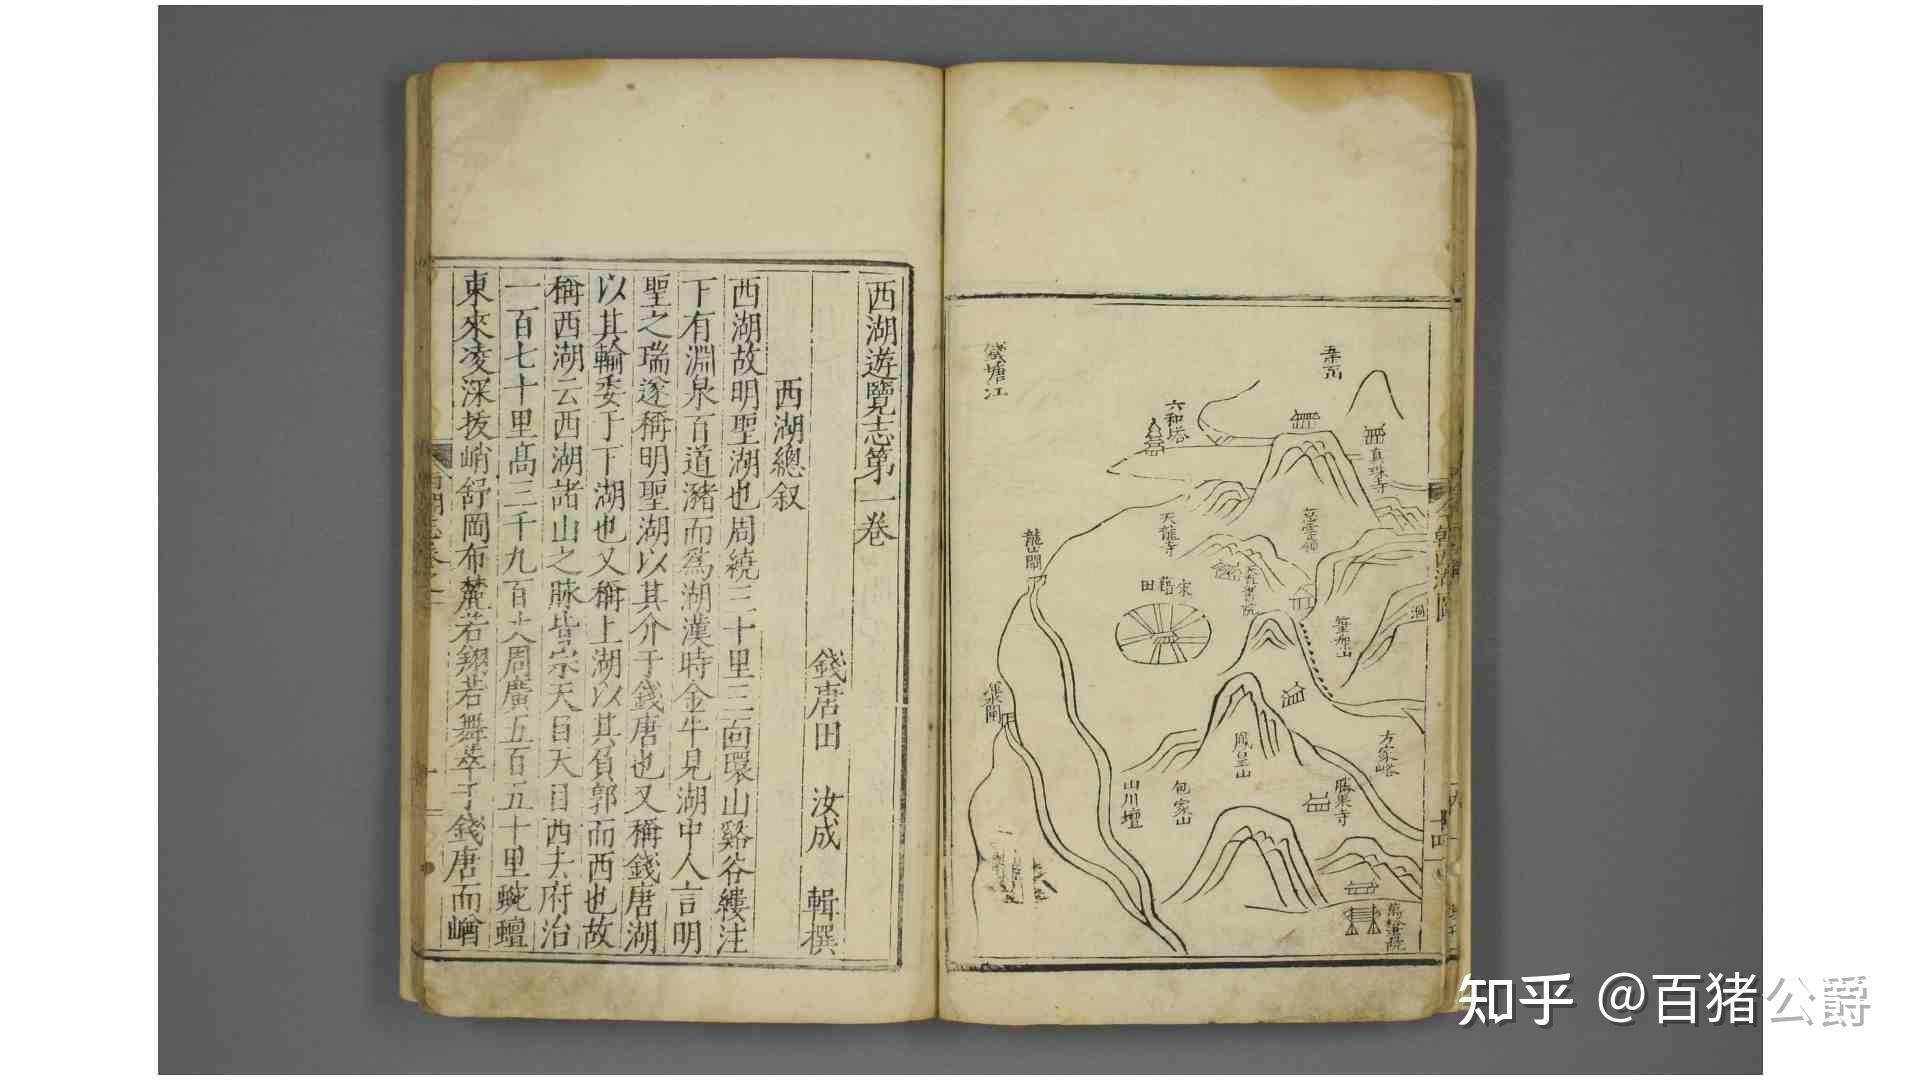 錢塘江
六和塔
真珠寺
天龍寺
龍山閘
宋藉田
筆架山
鳳皇山
方家峪
勝果寺
包家山
山川壇
萬松書院
今朝西湖圖
十四
西湖遊覽志第一卷
錢唐田 汝成 輯撰
西湖總叙
西湖故明聖湖也周繞三十里三面環山谿谷縷注
下有淵泉百道瀦而為湖漢時金牛見湖中人言明
聖之瑞遂稱明聖湖以其介于錢唐也又稱錢唐湖
以其輸委于下湖也又稱上湖以其負郭而西也故
稱西湖云西湖諸山之脉皆宗天目天目西去府治
一百七十里高三千九百丈周廣五百五十里蜿蟺
東來凌深拔峭舒岡布麓若翔若舞萃于錢唐而嶒
知乎 @百猪公爵